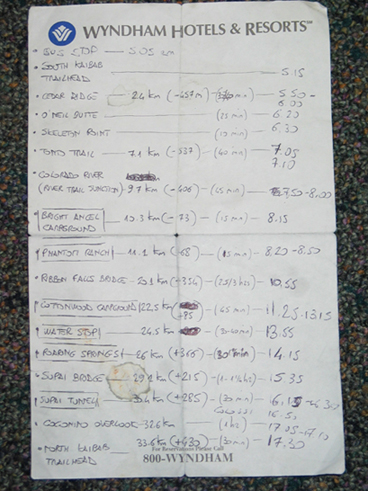 WYNDHAM HOTELS & RESORTS
BUS STOP — 5.05
SOUTH KAIBAB TRAILHEAD — 5.15
CEDAR RIDGE — 2.4 km (-457m) — 5.50 - 6.00
O'NEIL BUTTE — (25 min) — 6.20
SKELETON POINT — (10 min) — 6.30
TONTO TRAIL — 7.1 km (-537) — (40 min) — 7.05 7.10
COLORADO RIVER
(RIVER TRAIL JUNCTION) 9.7 km (-406) — (45 min) — 7.50-8.00
BRIGHT ANGEL CAMPGROUND — 10.3 km (-73) — (15 min) — 8.15
PHANTOM RANCH — 11.1 km (+68) — (15 min) — 8.20-8.50
RIBBON FALLS BRIDGE — 20.1 km (+354) — 10.55
COTTONWOOD CAMPGROUND 22.5 km +85 (45 min) — 11.25-13.15
WATER STOP — 24.5 (30-40 min) — 13.55
ROARING SPRINGS — 26 km (+366) — (30 min) — 14.15
SUPAI BRIDGE — 29.2 km (+215) — 15.35
SUPAI TUNNEL — 30.4 km (+285) — (30 min)
16.50
COCONINO OVERLOOK — 32.6 km (1 h) — 17.05-17.10
NORTH KAIBAB TRAILHEAD 33.6 km (+430) — (30 min) — 17.30
For Reservations Please Call
800-WYNDHAM